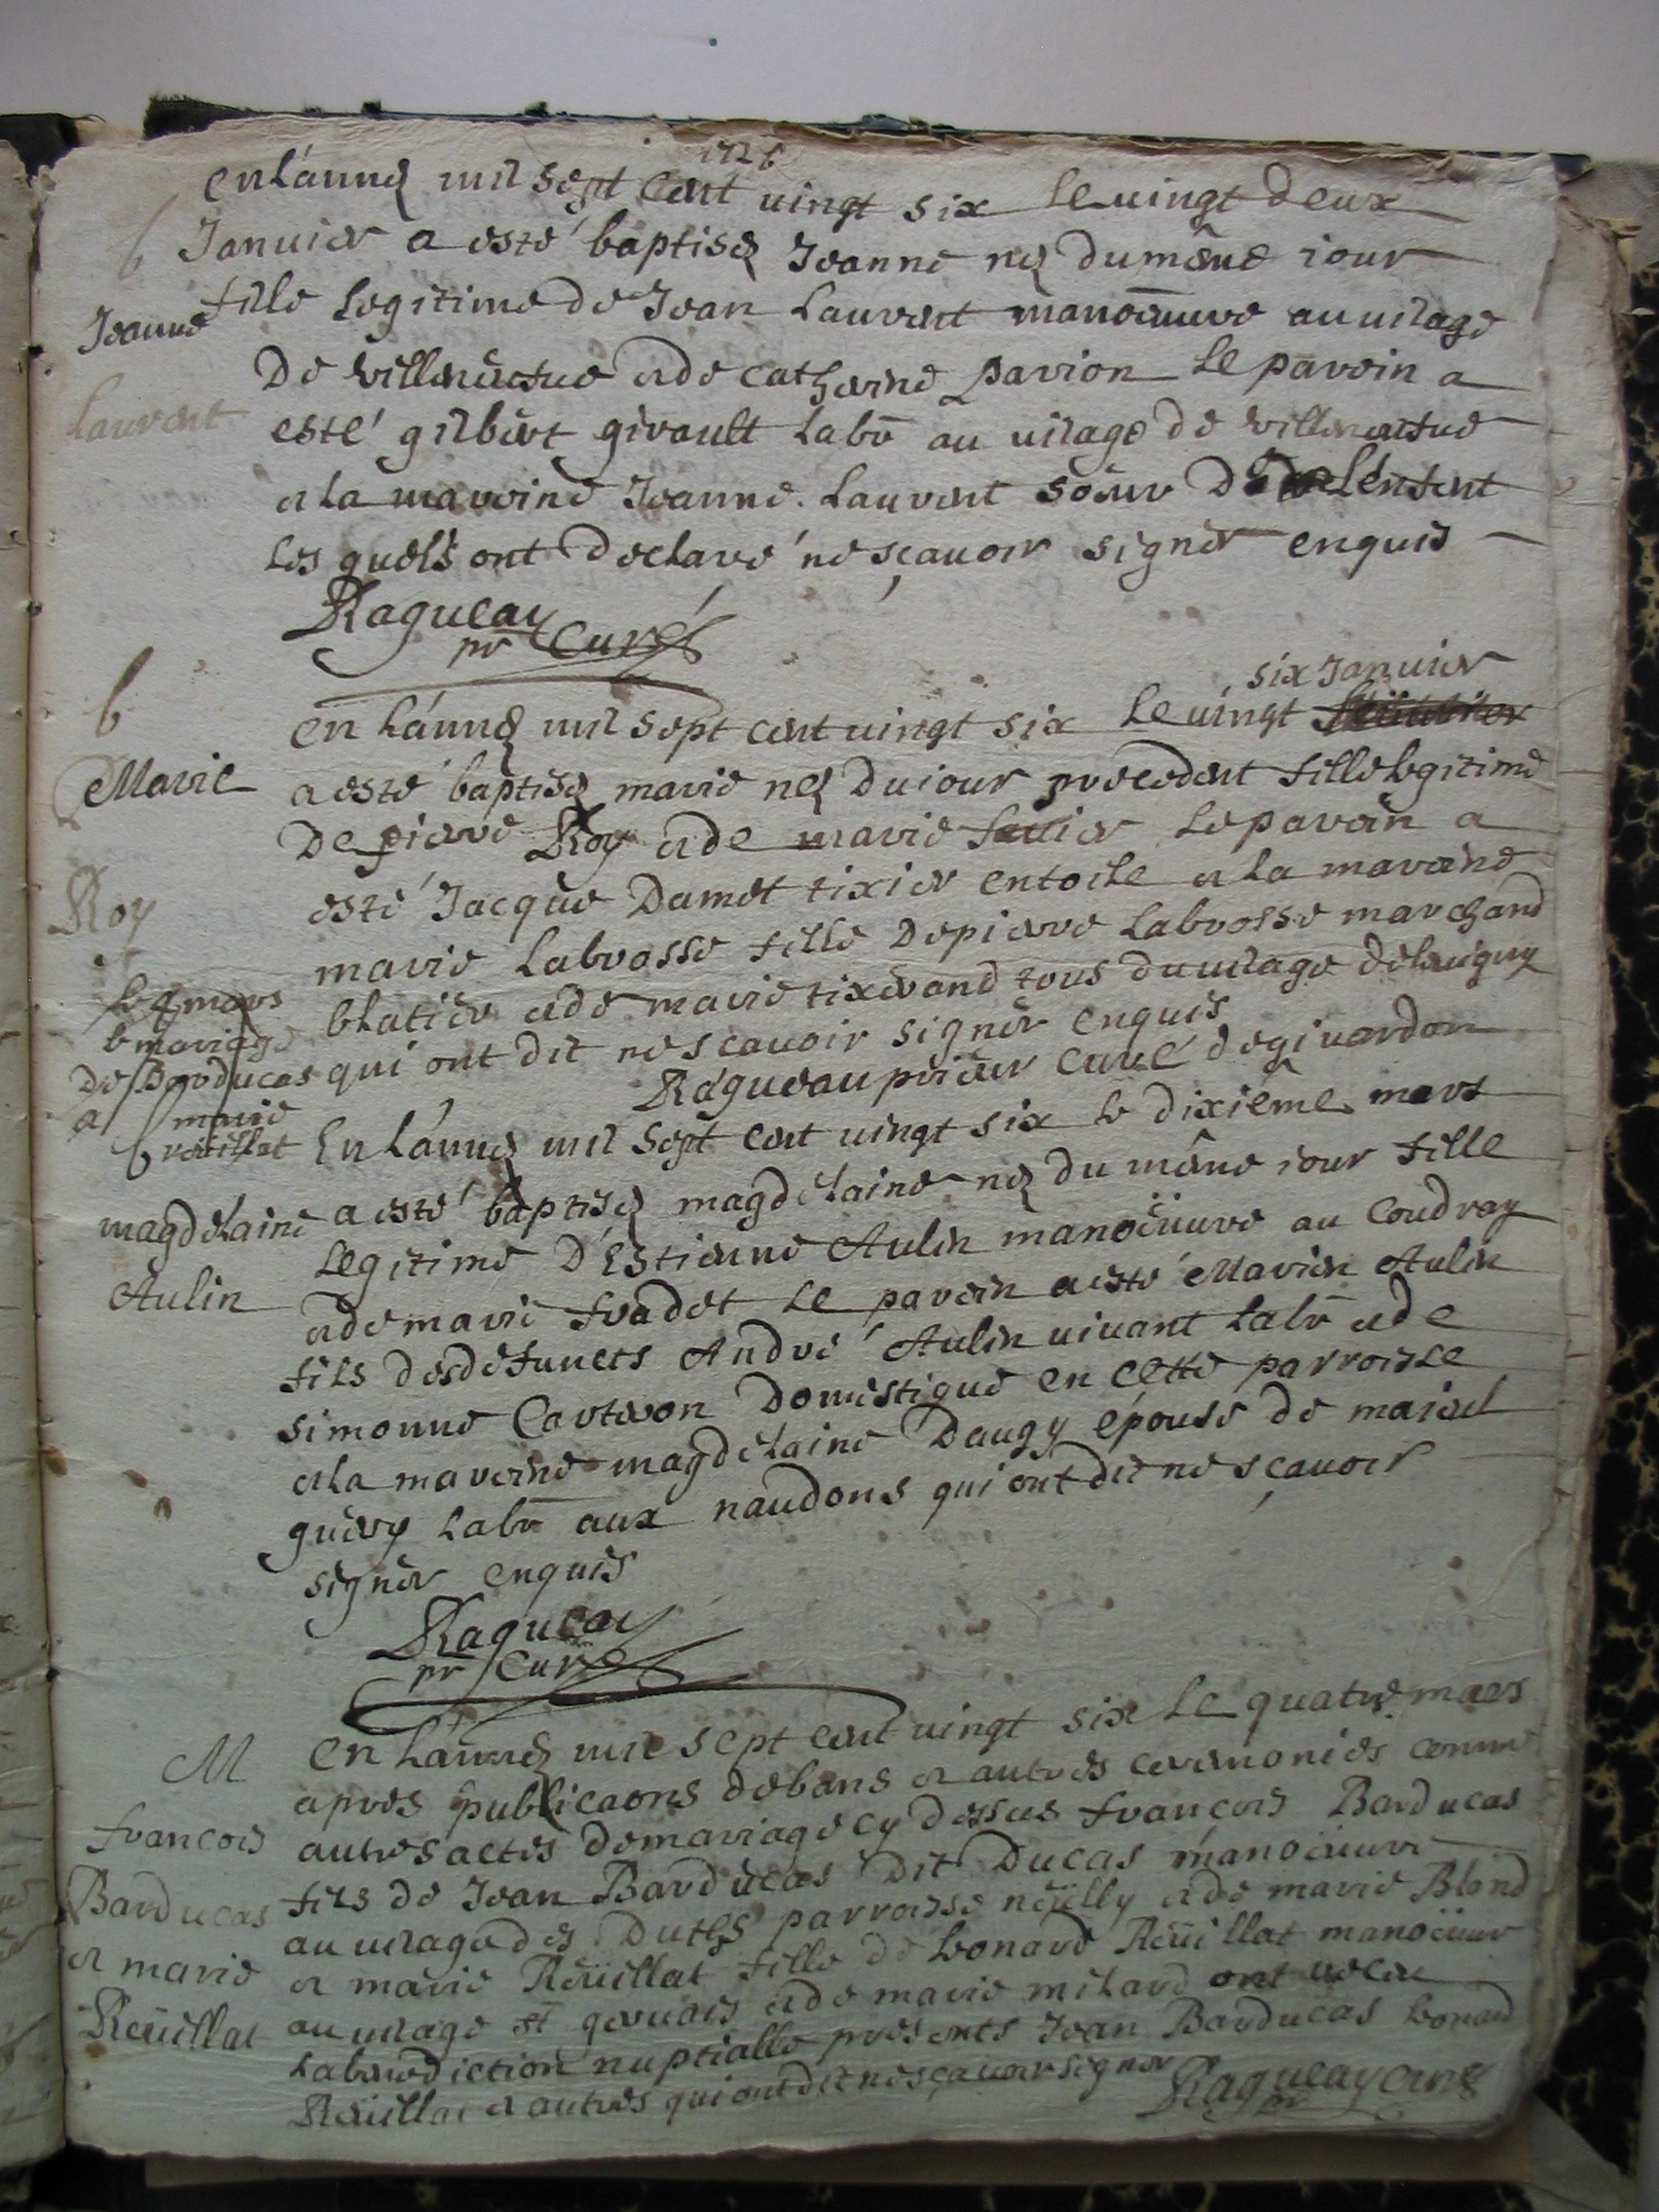 1726
en l'année mil sept cent vingt six le vingt deux
b
Januier a esté baptisée Jeanne née du même jour
Jeanne
fille legitime de Jean Laurent manoeuure au uilage
De villeneufue et de catherine parion Le parein a
Laurent
esté gilbert girault Labr au uilage de villeneufue
et La maroine Jeanne Laurent soeur De Lenfent
Les quels ont Declaré ne sçauoir signer enquis
Ragueau
pr Curé
six Januier
b
en L'année mil sept cent uingt six Le uingt
Marie
a esté baptisée marie née Du iour precedent fille legitime
De pierre Roy et de marie Le parein a
Roy
esté Jacque Damet tixier en toile et La mareine
marie Labrosse fille De pierre Labrosse marchand
blatier et de marie tixerand tous du uilage de
qui ont dit ne scauoir signer enquis
Ragueau prieur curé de giuardon
Le 4 mars
b mariage
De Barducas
a marie
reüillat
b
En L'année mil sept cent uingt six le dixiéme mars
magdelaine
a esté baptisée magdelaine née du même iour fille
Legitime D'Estienne Aulin manoeüure au Coudray
Aulin
et de marie fradet Le parein a esté Marien Aulin
fils des defuncts André Aulin uiuant Labr et de
simonne Carteron Domestique en cette parroisse
et La mareine magdelaine Daugy épouse de
guery Labr aux naudons qui ont dit ne sçauoir
signer enquis
Ragueau
pr Curé
M
en L'année mil sept cent uingt six Le quatre mars
apres publicaons de bans et autres ceremonies comme
francois
autres actes de mariage cy dessus françois Barducas
Barducas
fils de Jean Barducas dit Ducas manoeuure
au uilage des parroisse neüilly et de marie Blond
et marie
et marie Reüillat fille de Leonard Reüillat manoeuur
Reüillat
au uilage st geruais et de marie milard ont receu
La benediction nuptialle presents Jean Barducas Leonard
Reüillat et autres qui ont dit ne sçauoir signer
Ragueau curé
pr